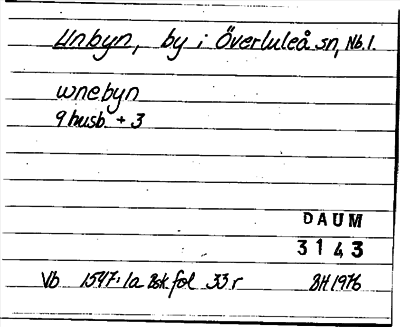 Unbyn, by i Överluleå sn, Nb.l.
wnebyn
9 husb. + 3
DAUM
3143
Vb 1547:1a Bsk fol 33 r BH 1976